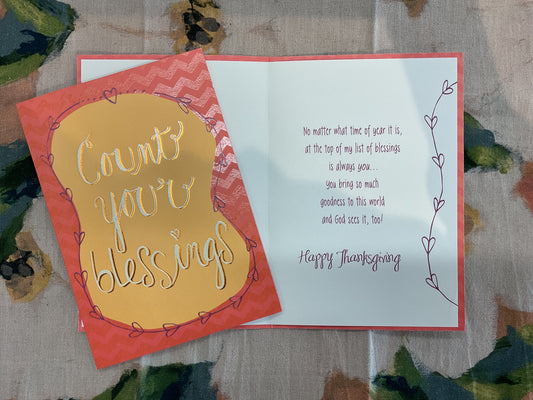 Count
your
blessings
No matter what time of year it is,
at the top of my list of blessings
is always you...
you bring so much
goodness to this world
and God sees it, too!
Happy Thanksgiving